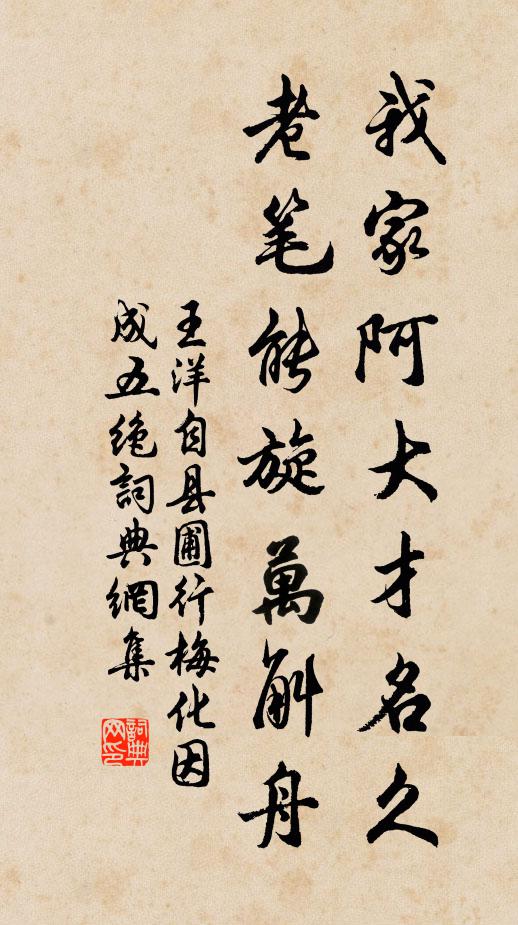 我家阿大才名久
老笔能旋萬斛舟
王洋自县圃行梅化因
成五绝詞典網集
詞典网印